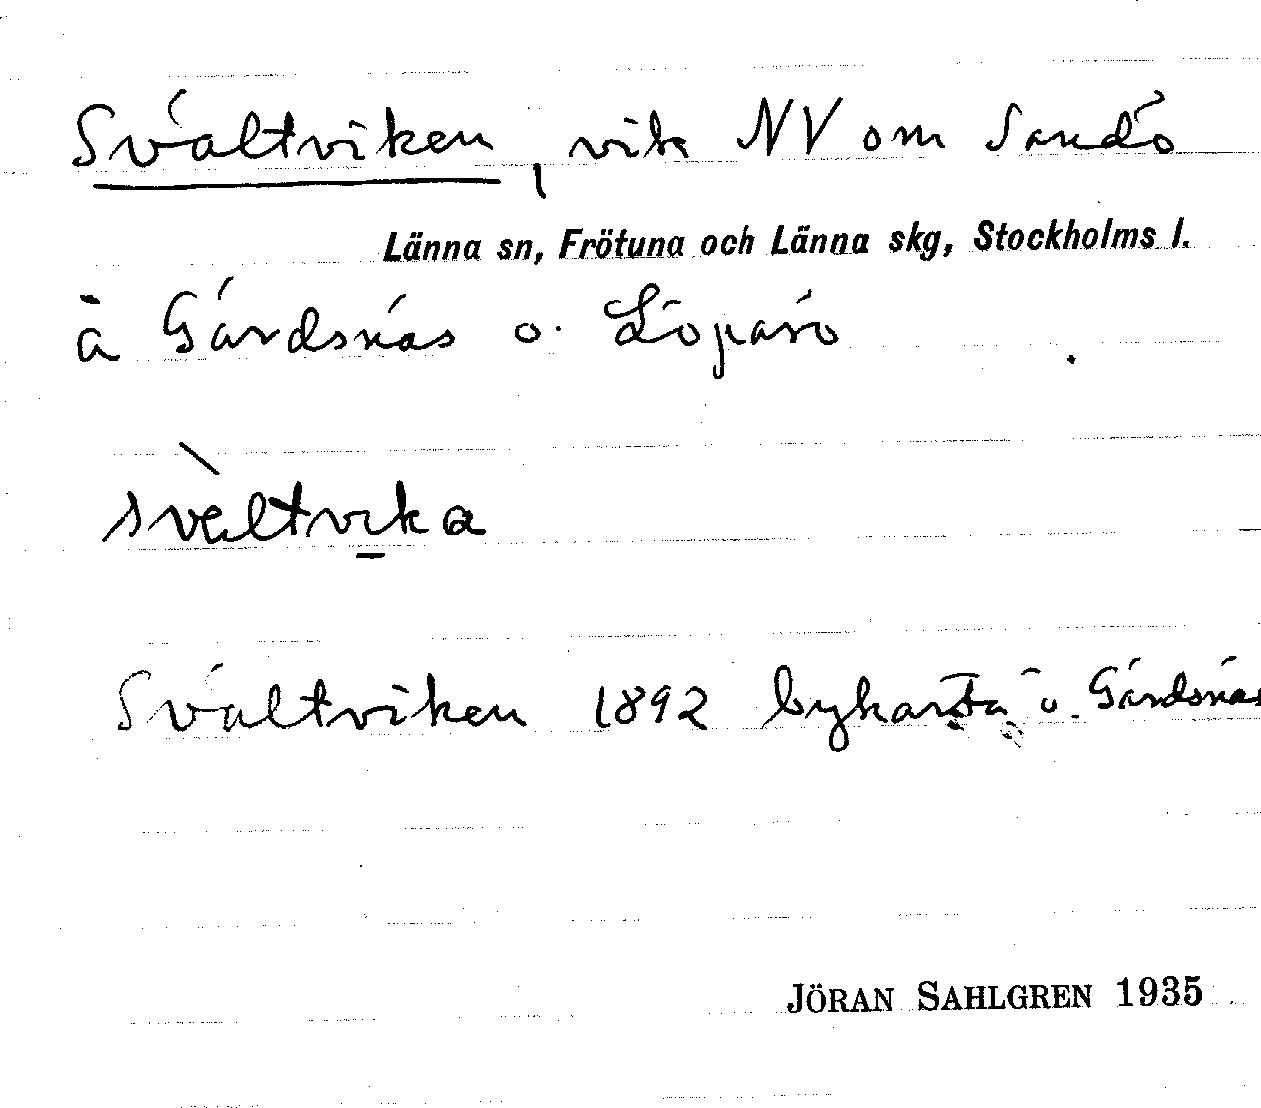 Svältviken, vik NV om Sandö
Länna sn, Frötuna och Länna skg, Stockholms l.
å Gärdsnäs o. Löparö
svὲltvika
Svältviken 1892 bykarta ö. Gärdsnäs
JÖRAN SAHLGREN 1935